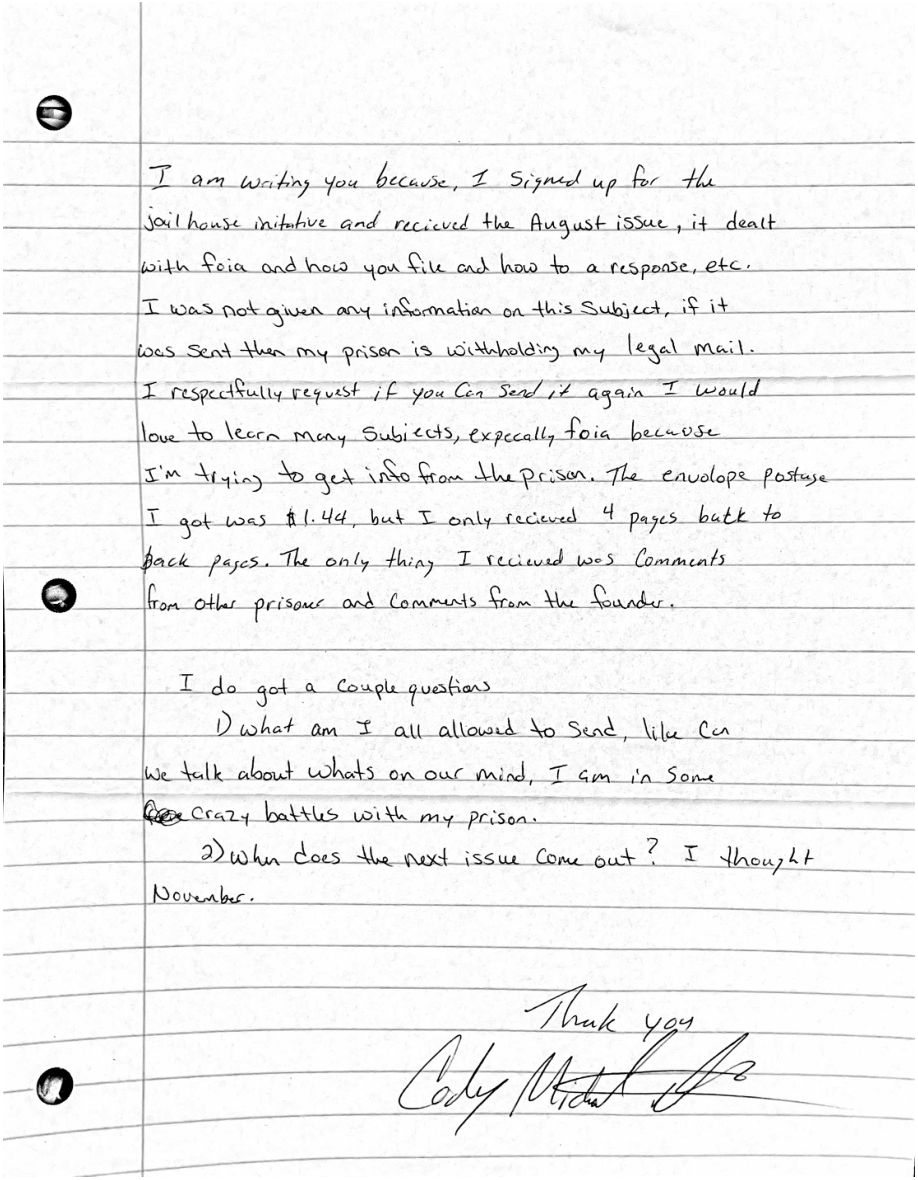 I am writing you because, I signed up for the
jailhouse initative and recieved the August issue, it dealt
with foia and how you file and how to a response, etc.
I was not given any information on this subject, if it
was sent then my prison is withholding my legal mail.
I respectfully request if you can send it again I would
love to learn many subjects, expecally foia because
I'm trying to get info from the prison. The envolope postage
I got was $1.44, but I only recieved 4 pages back to
back pages. The only thing I recieved was comments
from other prisoner and comments from the founder.
I do got a couple questions
1) what am I all allowed to send, like can
we talk about whats on our mind, I am in some
crazy battles with my prison.
2) when does the next issue come out? I thought
November.
Thank you
Cody Michael